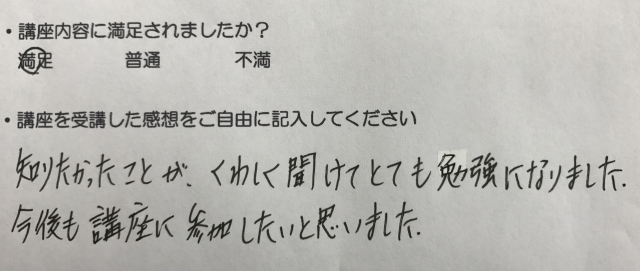 ・講座内容に満足されましたか？
満足 普通 不満
・講座を受講した感想をご自由に記入してください
知りたかったことが、くわしく聞けてとても勉強になりました。
今後も講座に参加したいと思いました。